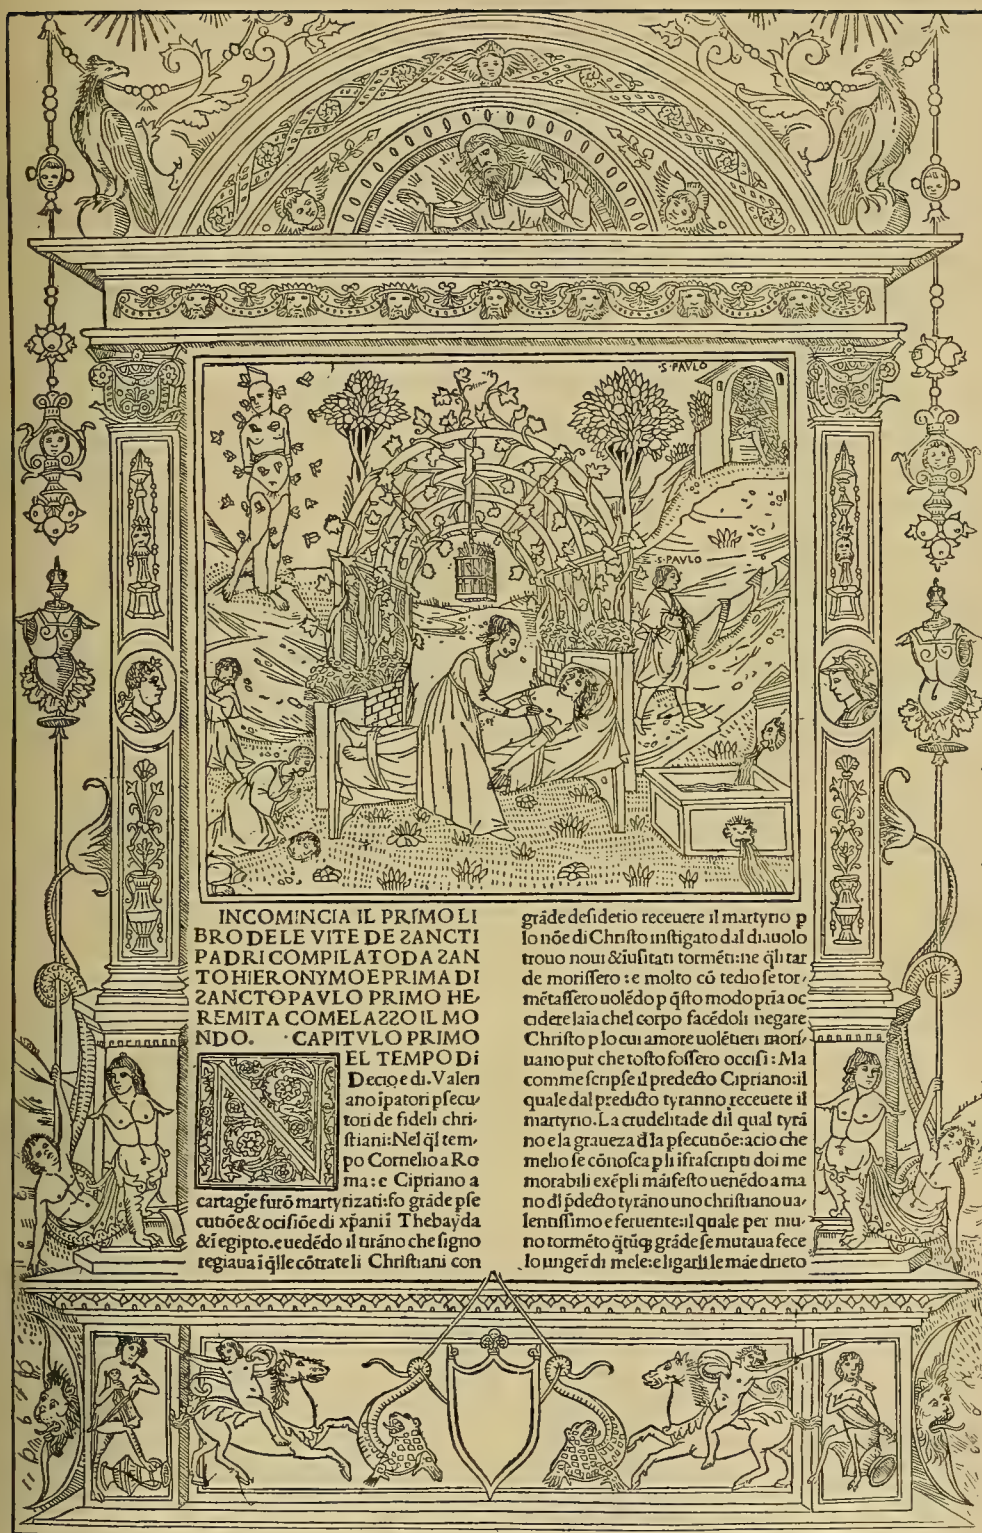 ·S·PAVLO
·S·PAVLO·
INCOMINCIA IL PRIMO LI
BRO DE LE VITE DE SANCTI
PADRI COMPILATO DA SAN
TO HIERONYMO E PRIMA DI
SANCTO PAVLO PRIMO HE-
REMITA COME LASSO IL MO
NDO. · CAPITVLO PRIMO
EL TEMPO Di
Decio e di. Valeri
ano īpatori ꝑsecu-
tori de fideli chri-
ſtiani: Nel ql̄ tem-
po Cornelio a Ro
ma: e Cipriano a
cartagīe furō martyrizati: fo grāde ꝑſe
cutiōe & occiſiōe di xp̄ani ī Thebayda
& ī egipto. e uedēdo il tirāno che ſigno
regiaua ī q̄lle cōtrate li Chriſtiani con
grāde deſiderio receuere il martyrio p
lo nōe di Chriſto inſtigato dal diauolo
trouo noui & iuſitati tormēti: ne q̄li tar
de moriſſero: e molto cō tedio ſe tor-
mētaſſero uolēdo p q̄ſto modo pria oc
cidere laīa chel corpo facēdoli negare
Chriſto p lo cui amore uolētieri mori-
uano pur che toſto foſſero occiſi: Ma
comme ſcripſe il predecto Cipriano: il
quale dal predicto tyranno receuete il
martyrio. La crudelitade dil qual tyrā
no e la graueza d̄la ꝑſecutiōe: acio che
melio ſe cōnoſca p li īfraſcripti doi me
morabili exēpli māifeſto uenēdo a ma
no dl̄ p̄decto tyrāno uno chriſtiano ua-
lentiſſimo e feruente: il quale per niu-
no tormēto q̄tūq̄ grāde ſe mutaua fece
lo ungeř di mele: e ligarli le māe drieto